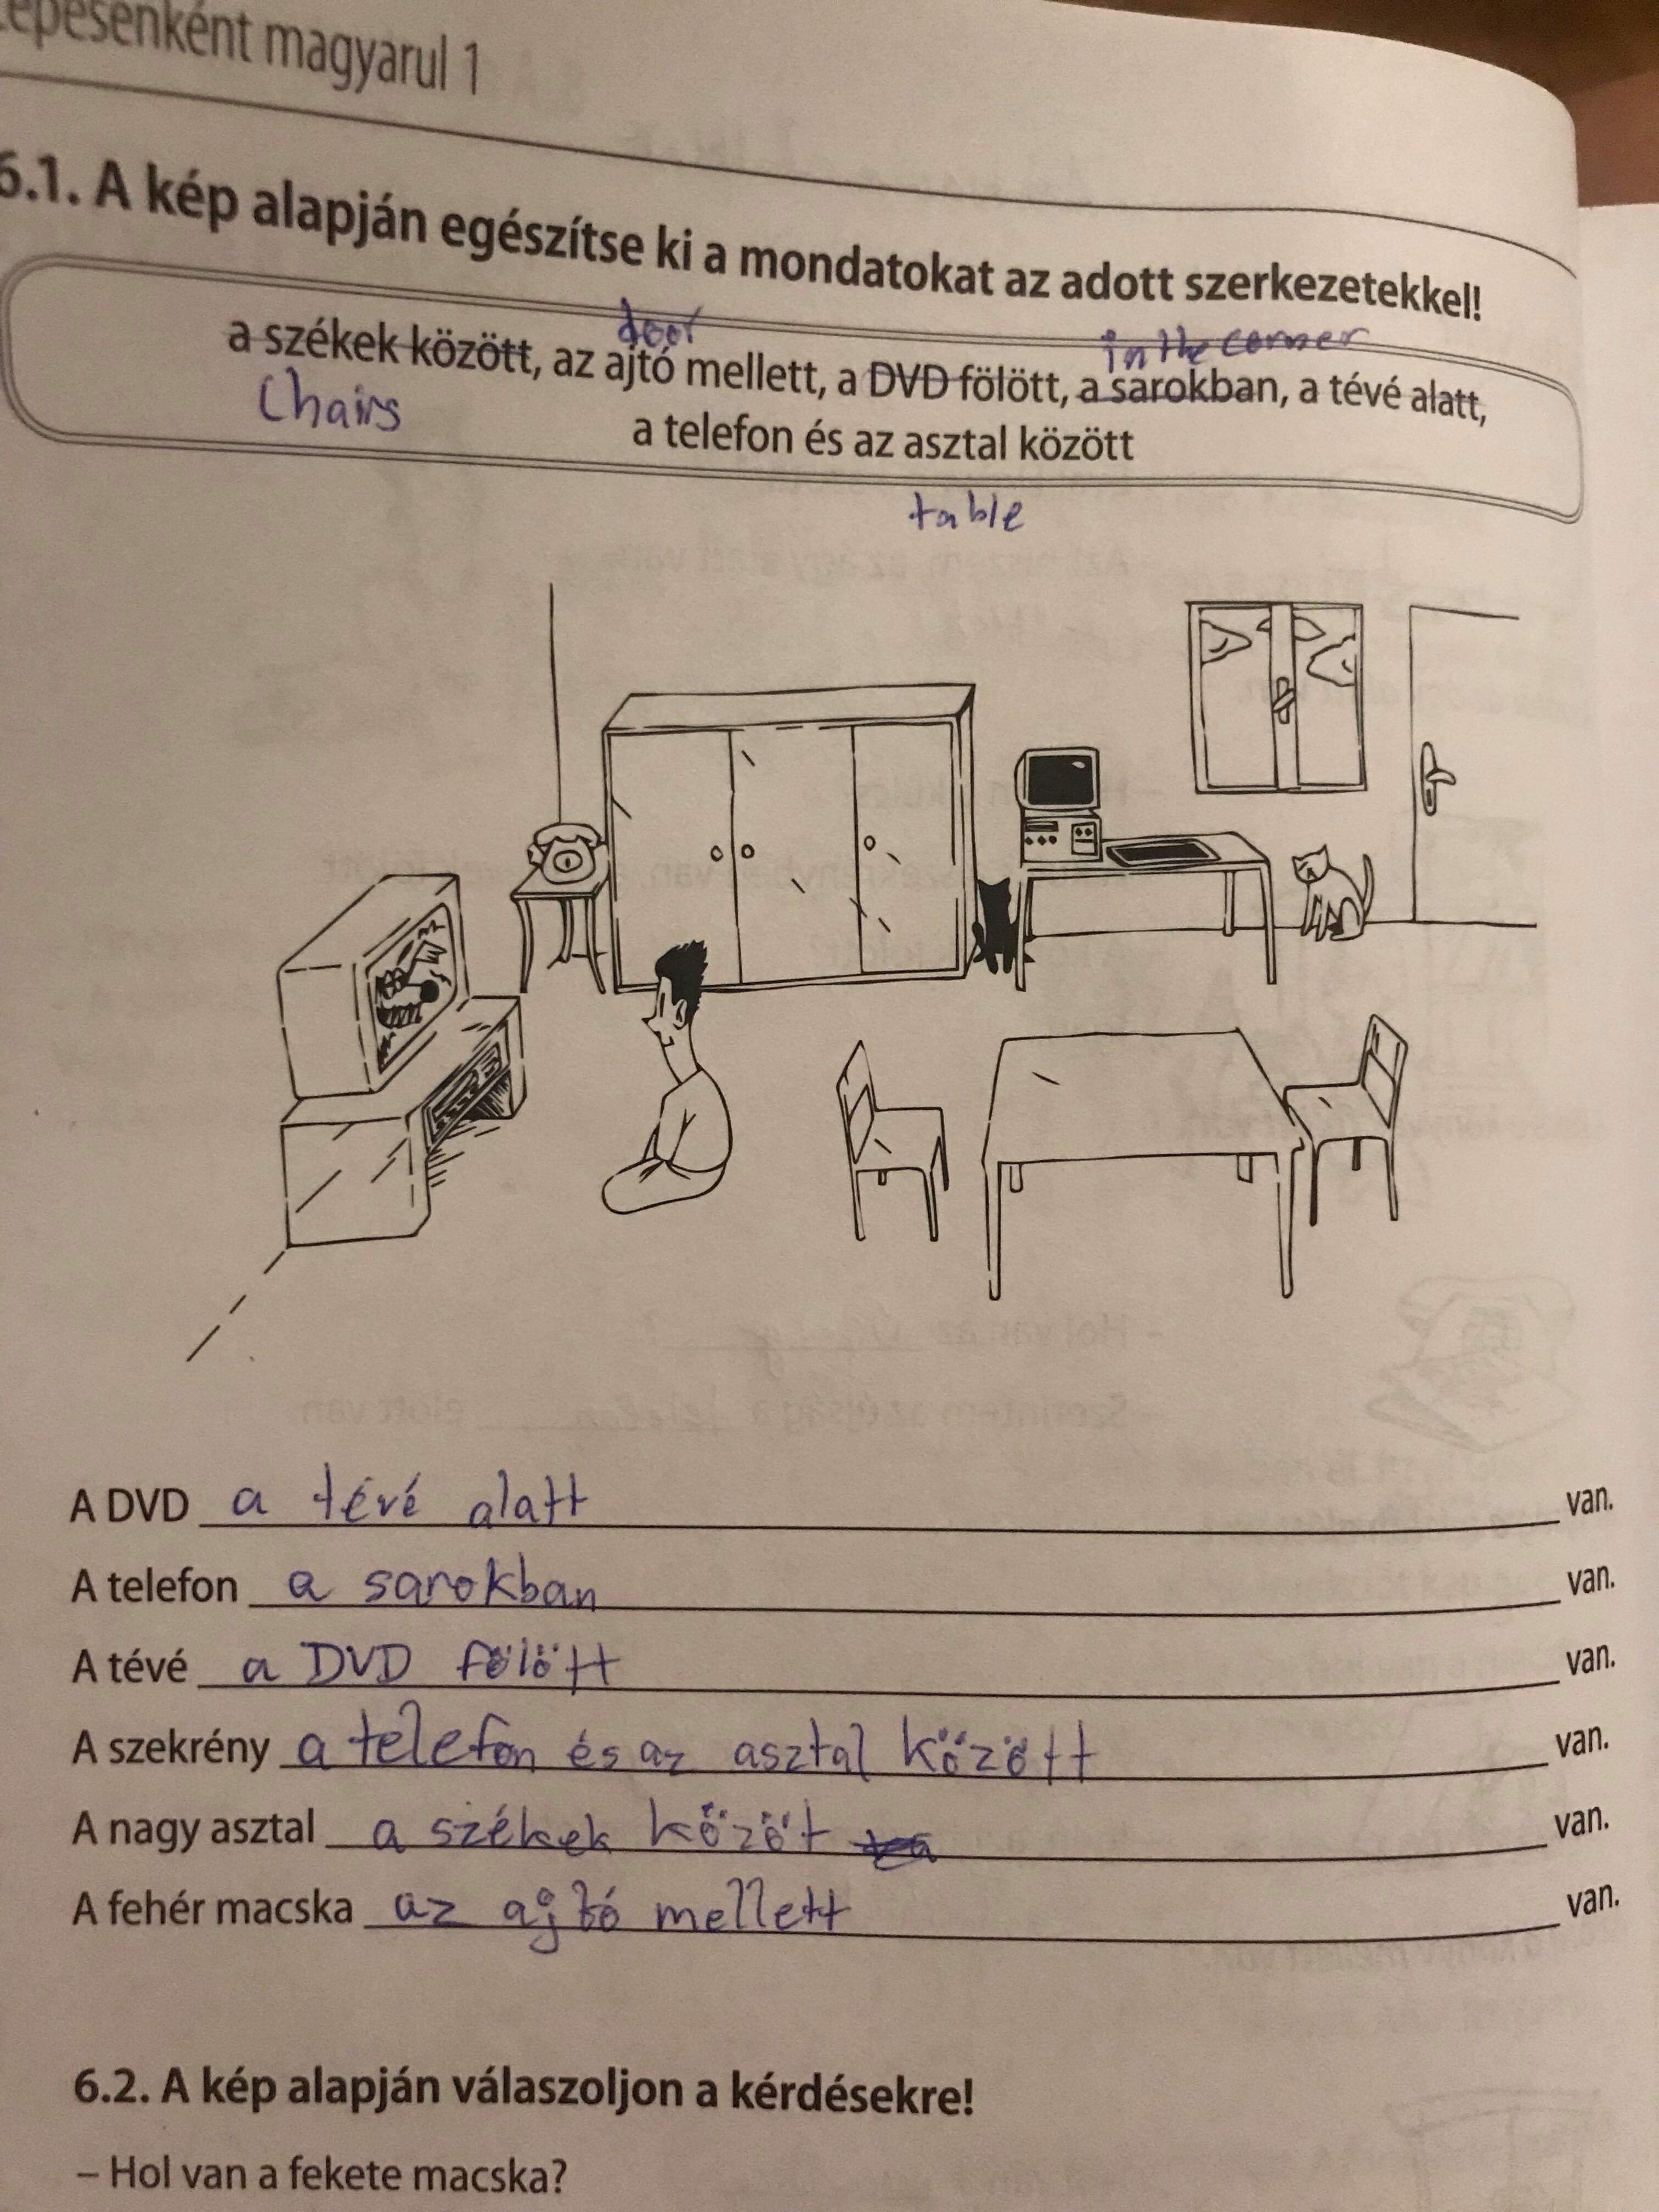 épésenként magyarul 1
6.1. A kép alapján egészítse ki a mondatokat az adott szerkezetekkel!
door
in the corner
a székek között, az ajtó mellett, a DVD fölött, a sarokban, a tévé alatt,
Chairs
a telefon és az asztal között
table
A DVD a tévé alatt van.
A telefon a sarokban van.
A tévé a DVD fölött van.
A szekrény a telefon és az asztal között van.
A nagy asztal a székek közöt van.
A fehér macska az ajtó mellett van.
6.2. A kép alapján válaszoljon a kérdésekre!
– Hol van a fekete macska?